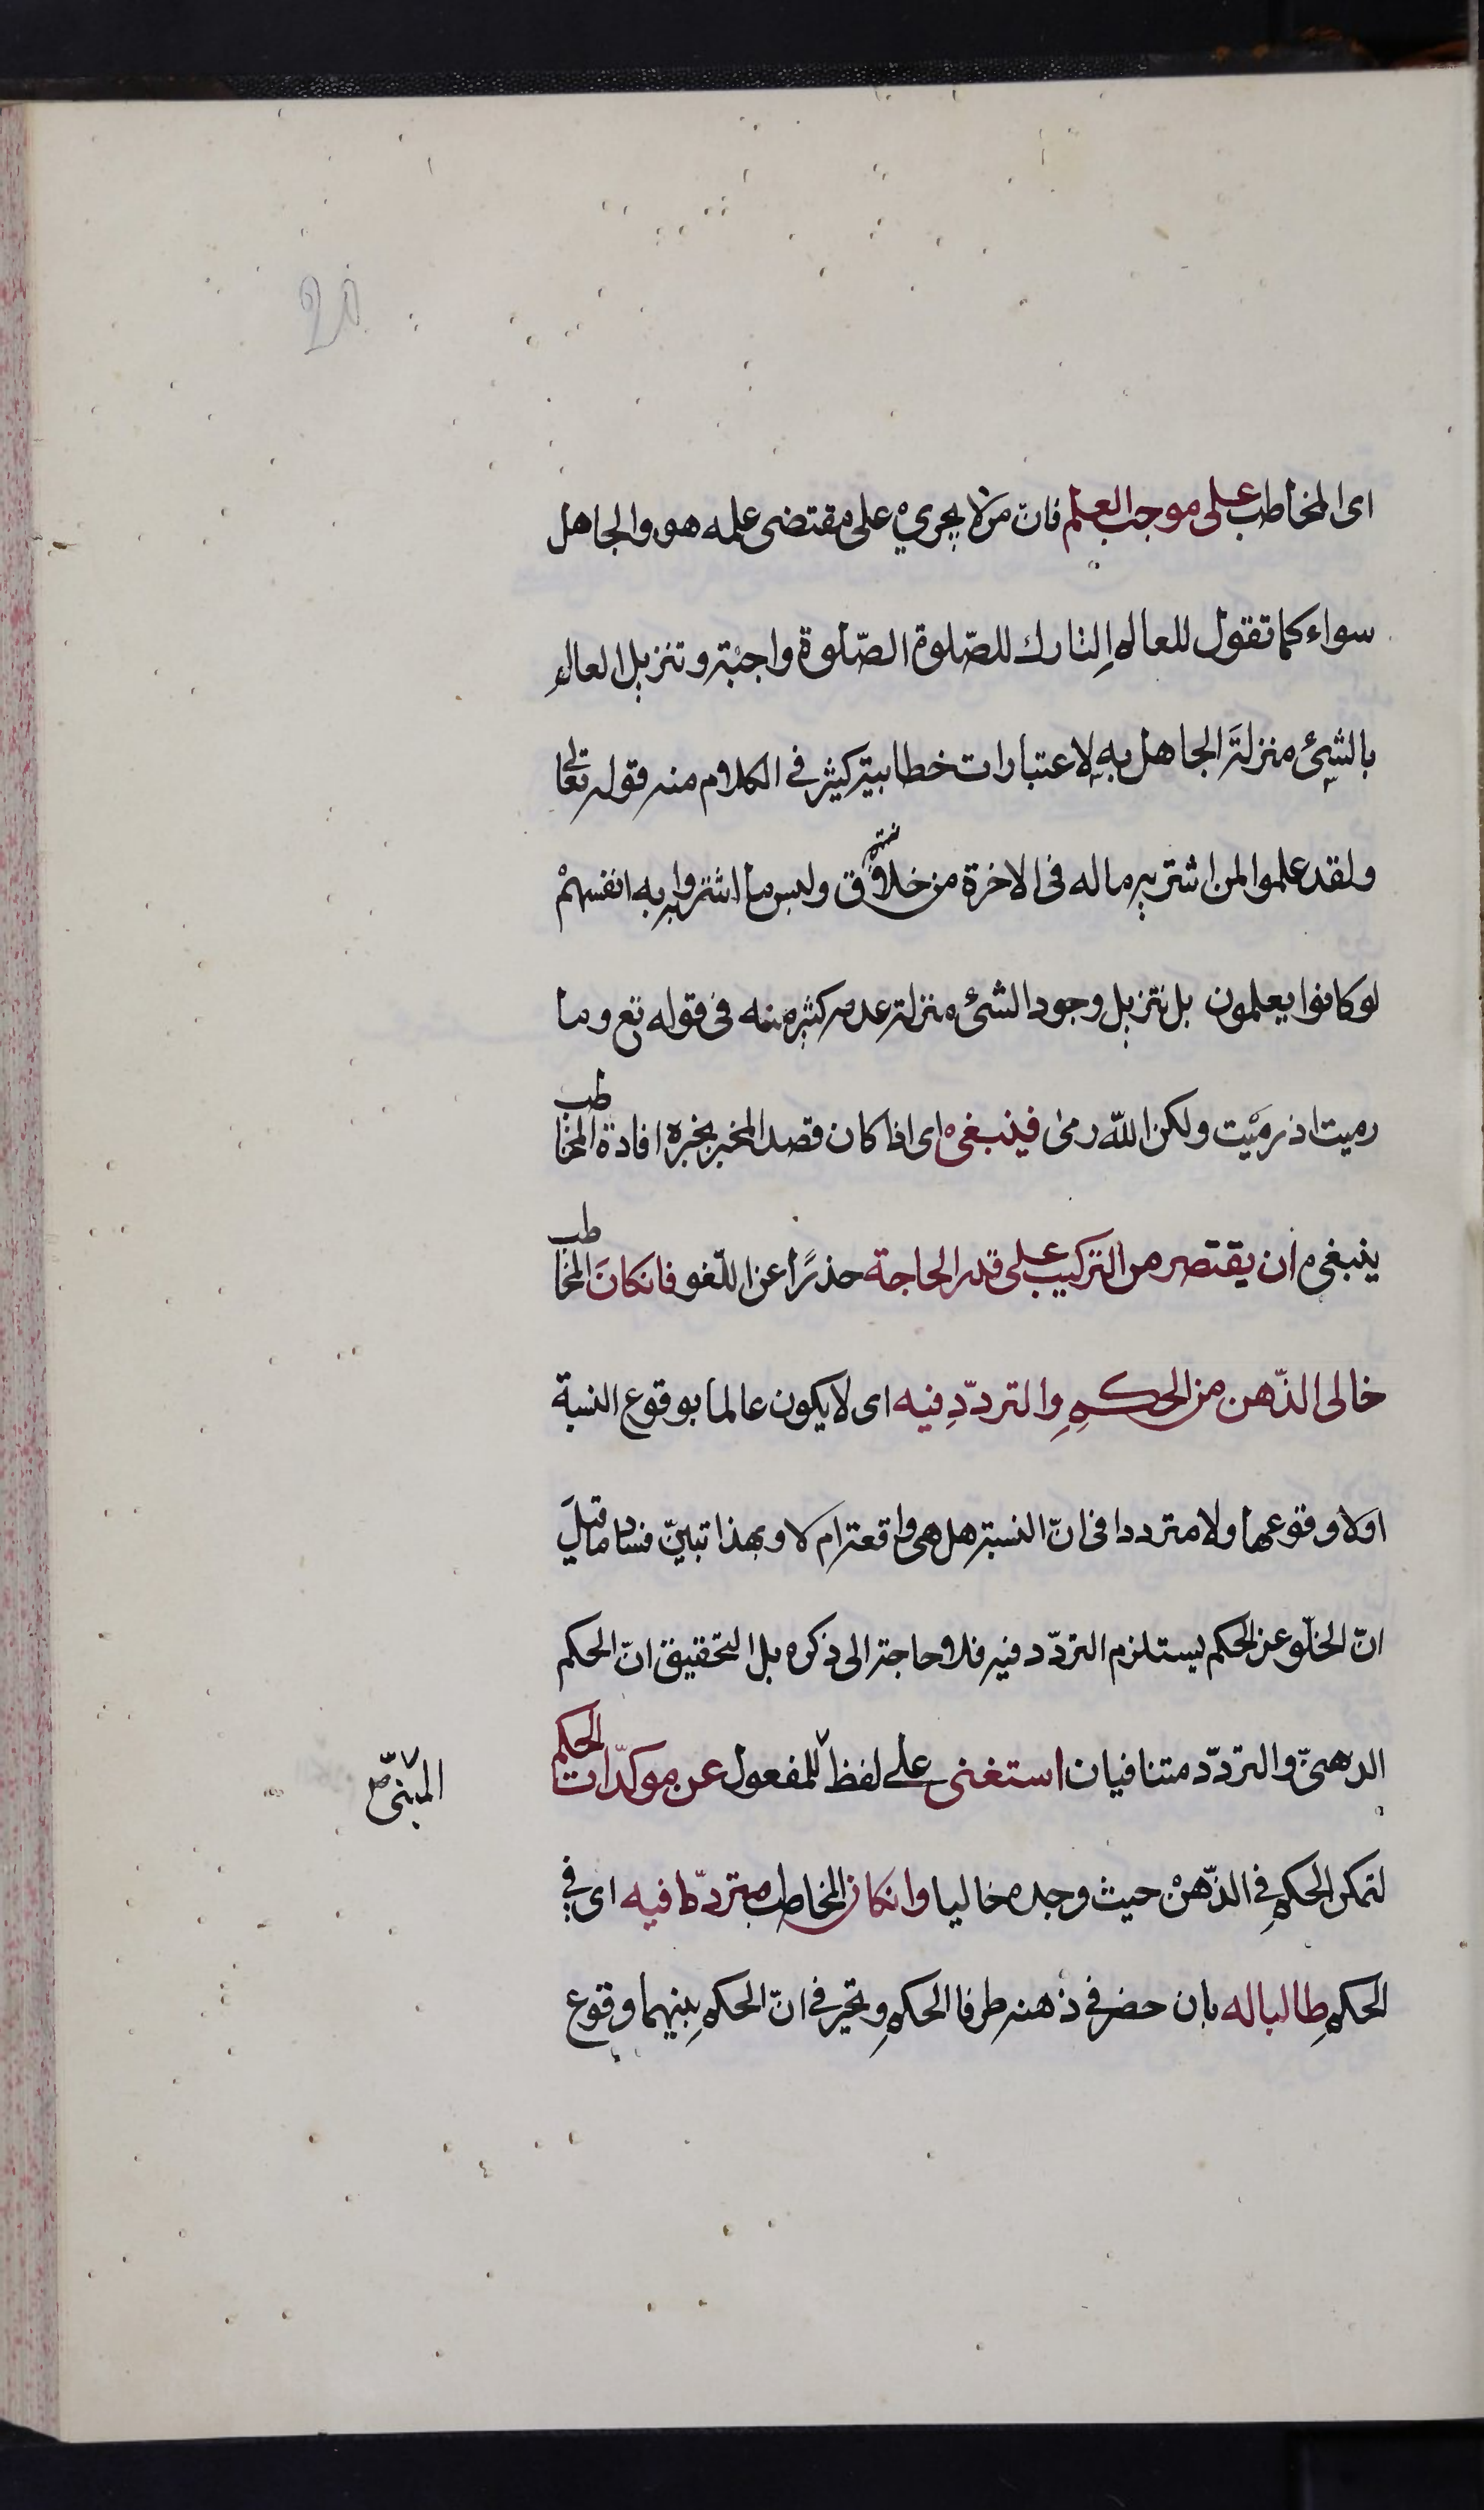 اى المخاطب على موجب العلم فانّ من لا يجري على مقتضى علمه هو والجاهل
سواء كما تقول للعالم التارك للصّلوة الصّلوة واجبة وتنزيل العالم
بالشئ منزلة الجاهل به لاعتبارات خطابية كثير فى الكلام منه قوله تعالى
ولقد علموا لمن اشتريه ماله فى الاخرة من خلاق ولبس ما اشتروا به انفسهم
لو كانوا يعلمون بل تنزيل وجود الشئ منزلة عدمه كثير منه فى قوله تع وما
رميت اذ رميت ولكن الله رمى فينبغى اى اذا كان قصد المخبر بخبره افادة المخاطب
ينبغى ان يقتصر من التركيب على قدر الحاجة حذرًا عن اللّغو فان كان المخاطب
خالى الذّهن من الحكم والتردّدِ فيه اى لا يكون عالما بوقوع النسبة
اولا وقوعها ولا مترددا فى انّ النسبة هل هى واقعة ام لا وبهذا تبيّن فساد ما قيل
انّ الخلّو عن الحكم يستلزم التردّد فيه فلا حاجة الى ذكره بل التحقيق انّ الحكم
الدهنىّ والتردّد متنافيان استغنى على لفظ للمفعول عن موكدّات الحكم
المبنىّ صح
لتمكن الحكم فى الذّهن حيث وجده خاليا وان كان المخاطب متردّدا فيه اى فى
الحكم طالبا له بان حضر فى ذهنه طرفا الحكم وتحير فى انّ الحكم بينهما وقوع